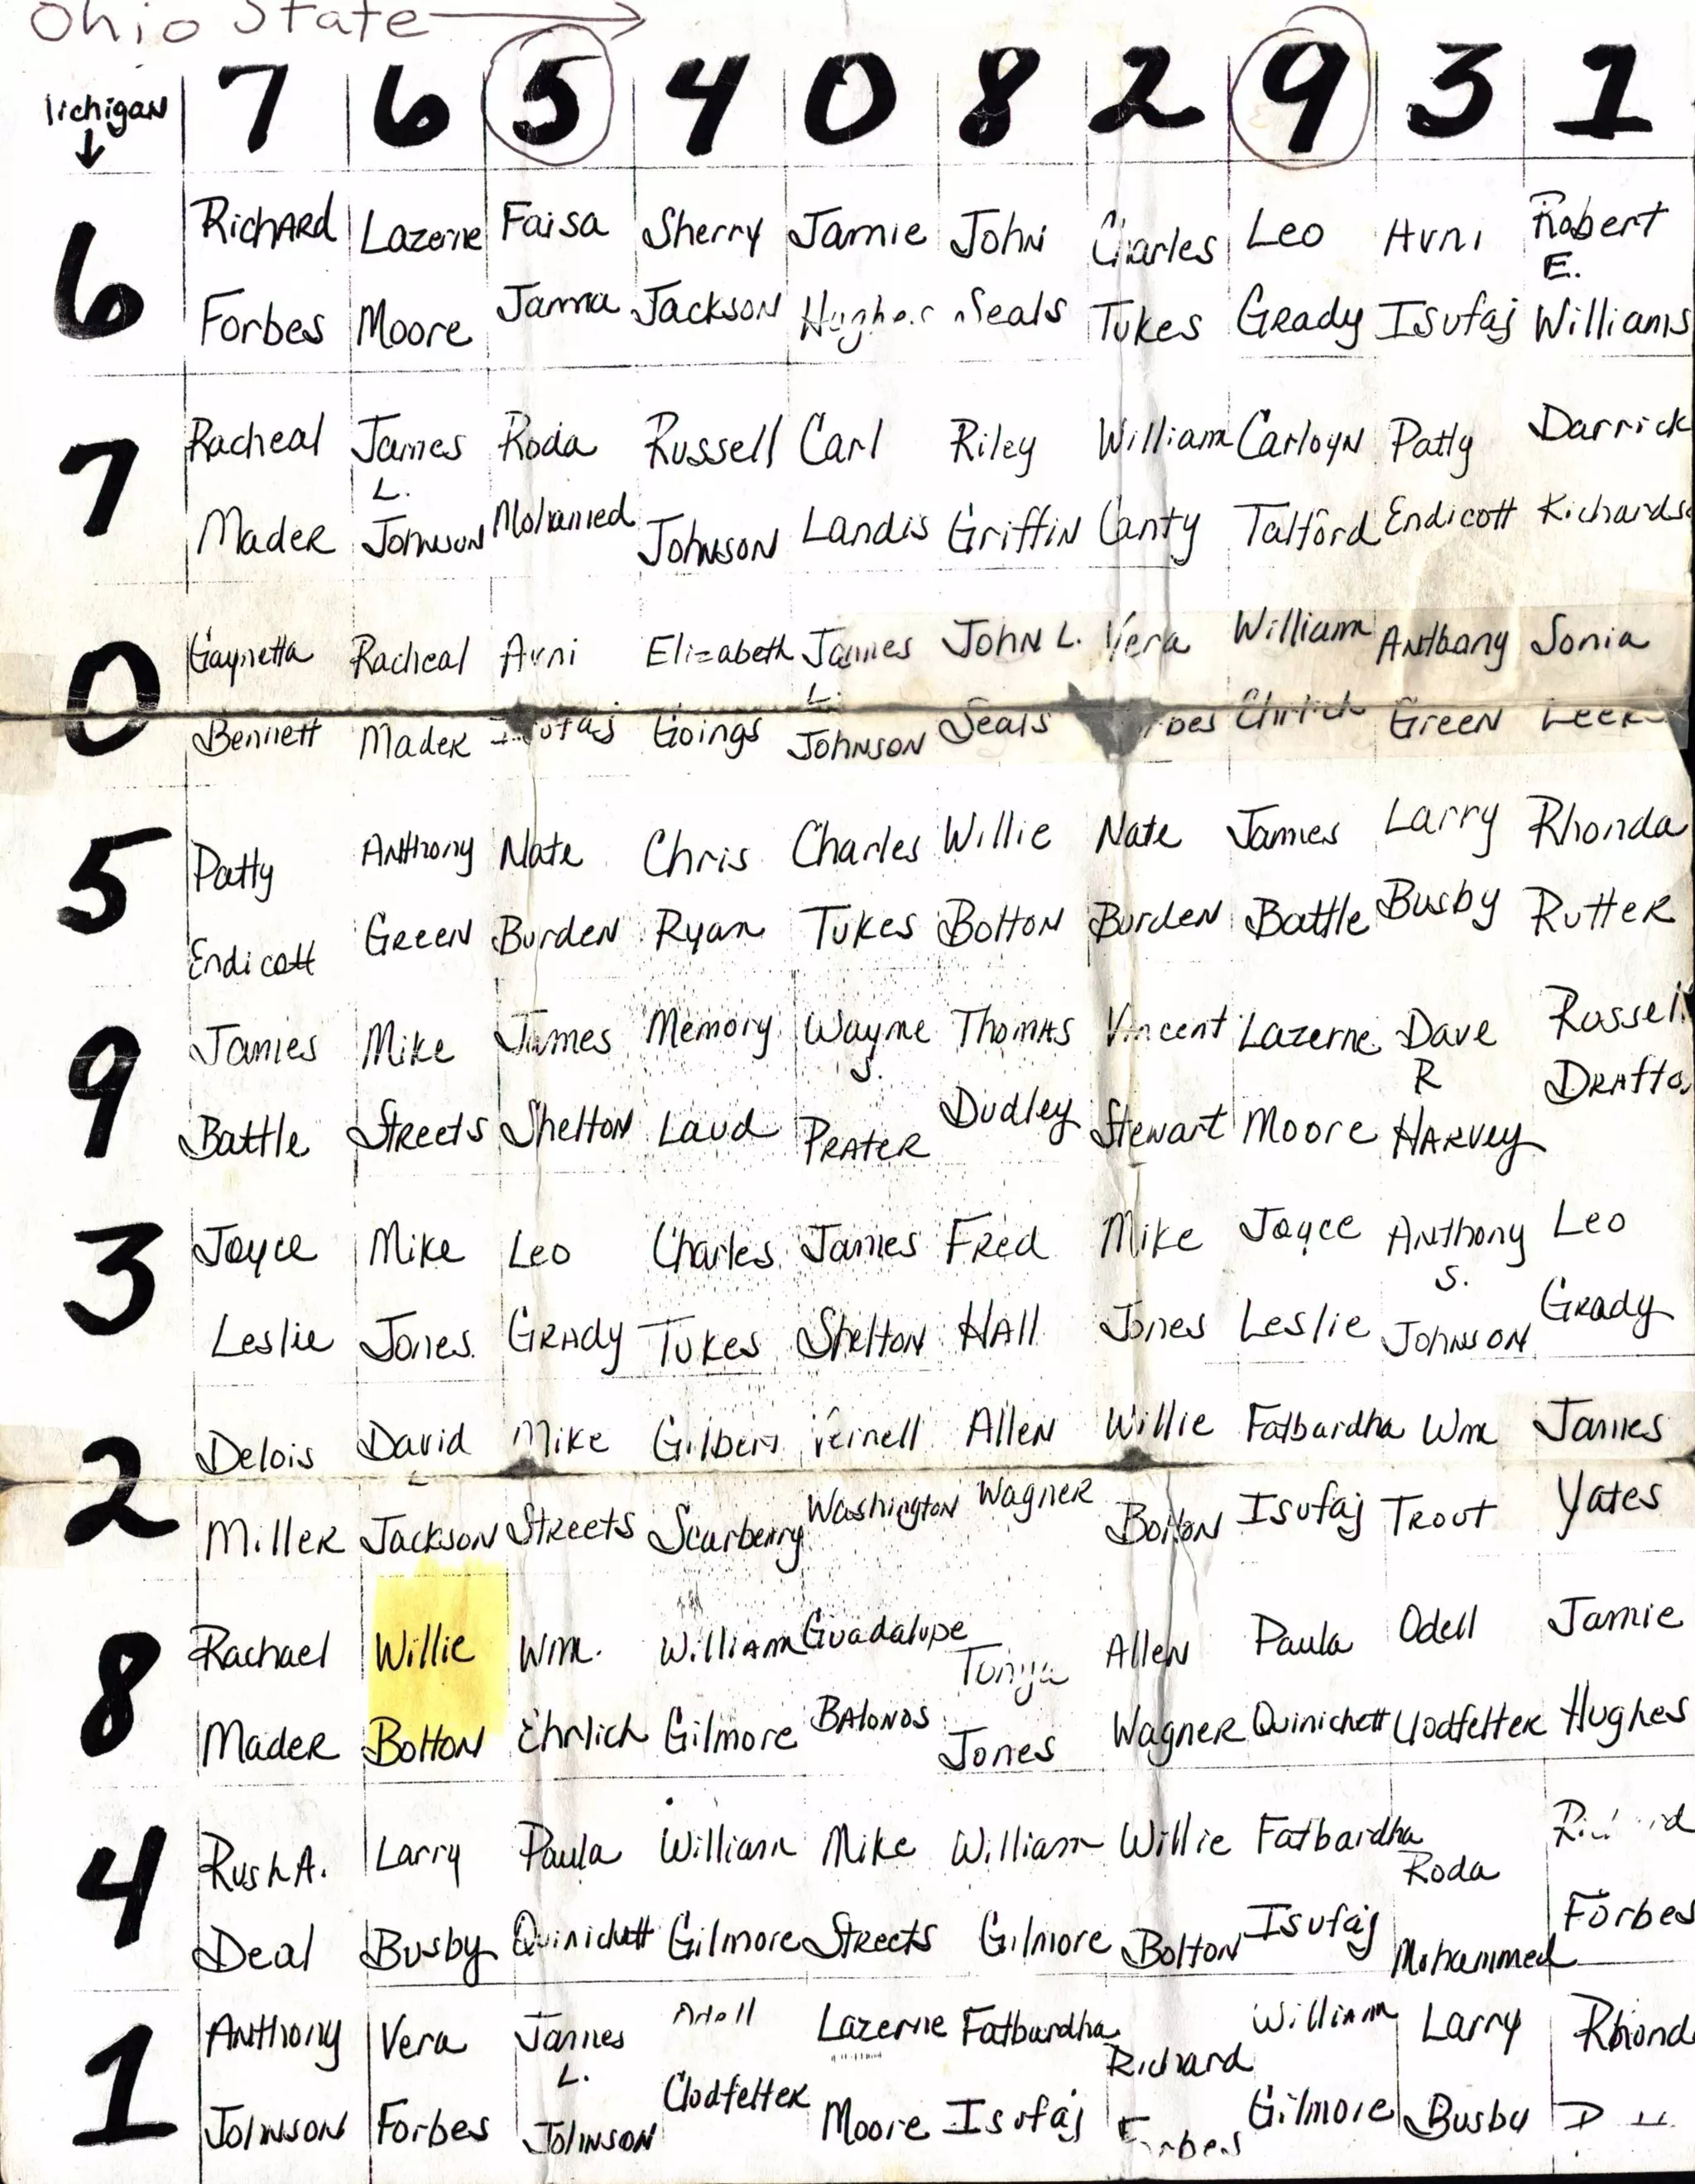 Ohio State
Michigan 7 6 5 4 0 8 2 9 3 1
6
Richard Lazerne Faisa Sherry Jamie John Charles Leo Avni Robert
E.
Forbes Moore Jama Jackson Hughes Seals Tukes Grady Isufaj Williams
7
Racheal James Roda Russell Carl Riley William Carloyn Patty Darrick
L.
Mader Johnson Mohamed Johnson Landis Griffin Canty Talford Endicott
0
Gaynetta Racheal Avni Elizabeth James John L. Vera William Anthony Sonia
L.
Bennett Mader Isufaj Goings Johnson Seals Green
5
Patty Anthony Nate Chris Charles Willie Nate James Larry Rhonda
Endicott Green Burden Ryan Tukes Bolton Burden Battle Busby Rutter
9
James Mike James Memory Wayne Thomas Vincent Lazerne Dave Russell
J. R
Battle Streets Shelton Laud Prater Dudley Stewart Moore Harvey
3
Joyce Mike Leo Charles James Fred Mike Joyce Anthony Leo
S.
Leslie Jones Grady Tukes Shelton Hall Jones Leslie Johnson Grady
2
Delois David Mike Gilbert Vernell Allen Willie Fatbardha Wm James
Miller Jackson Streets Scarberry Washington Wagner Bolton Isufaj Trout Yates
8
Rachael Willie Wm. William Guadalupe Tonya Allen Paula Odell Jamie
Mader Bolton Ehrlich Gilmore Balonos Jones Wagner Quinichett Clodfelter Hughes
4
Rush A. Larry Paula William Mike William Willie Fatbardha Roda Richard
Deal Busby Quinichett Gilmore Streets Gilmore Bolton Isufaj Mohammed Forbes
1
Anthony Vera James Odell Lazerne Fatbardha Richard William Larry
L.
Johnson Forbes Johnson Clodfelter Moore Isufaj Forbes Gilmore Busby